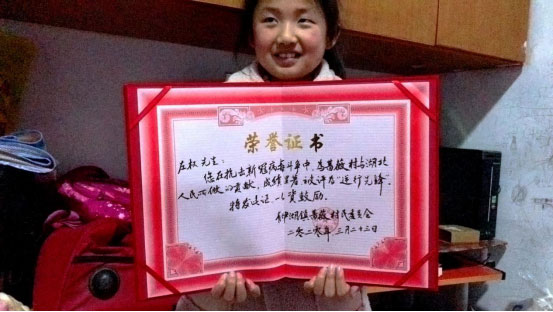 荣誉证书
先生:
您在抗击新冠病毒斗争中,为蔷薇村与湖北
人民所做的贡献,成绩显著 被评为"逆行先锋".
特发此证 以资鼓励.
湖镇蔷薇村民委员会
二〇二〇年 三月二十三日